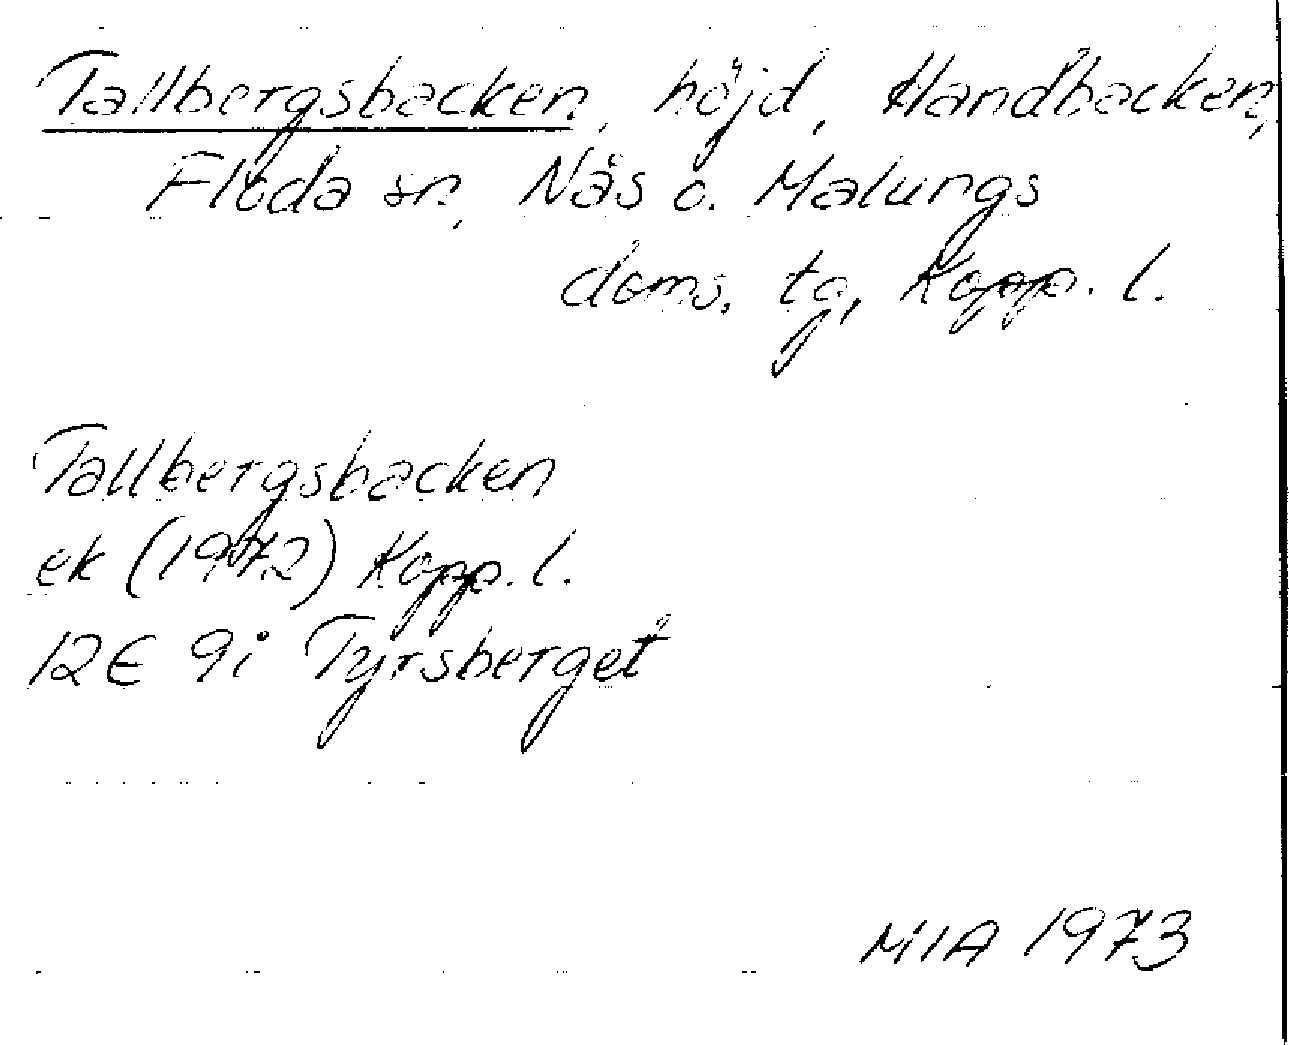 Tallbergsbacken, höjd, Handbacken,
Floda sn, Nås o. Malungs
doms. tg, Kopp. l.
Tallbergsbacken
ek (1972) Kopp. l.
12E 9i Tyrsberget
MIA 1973